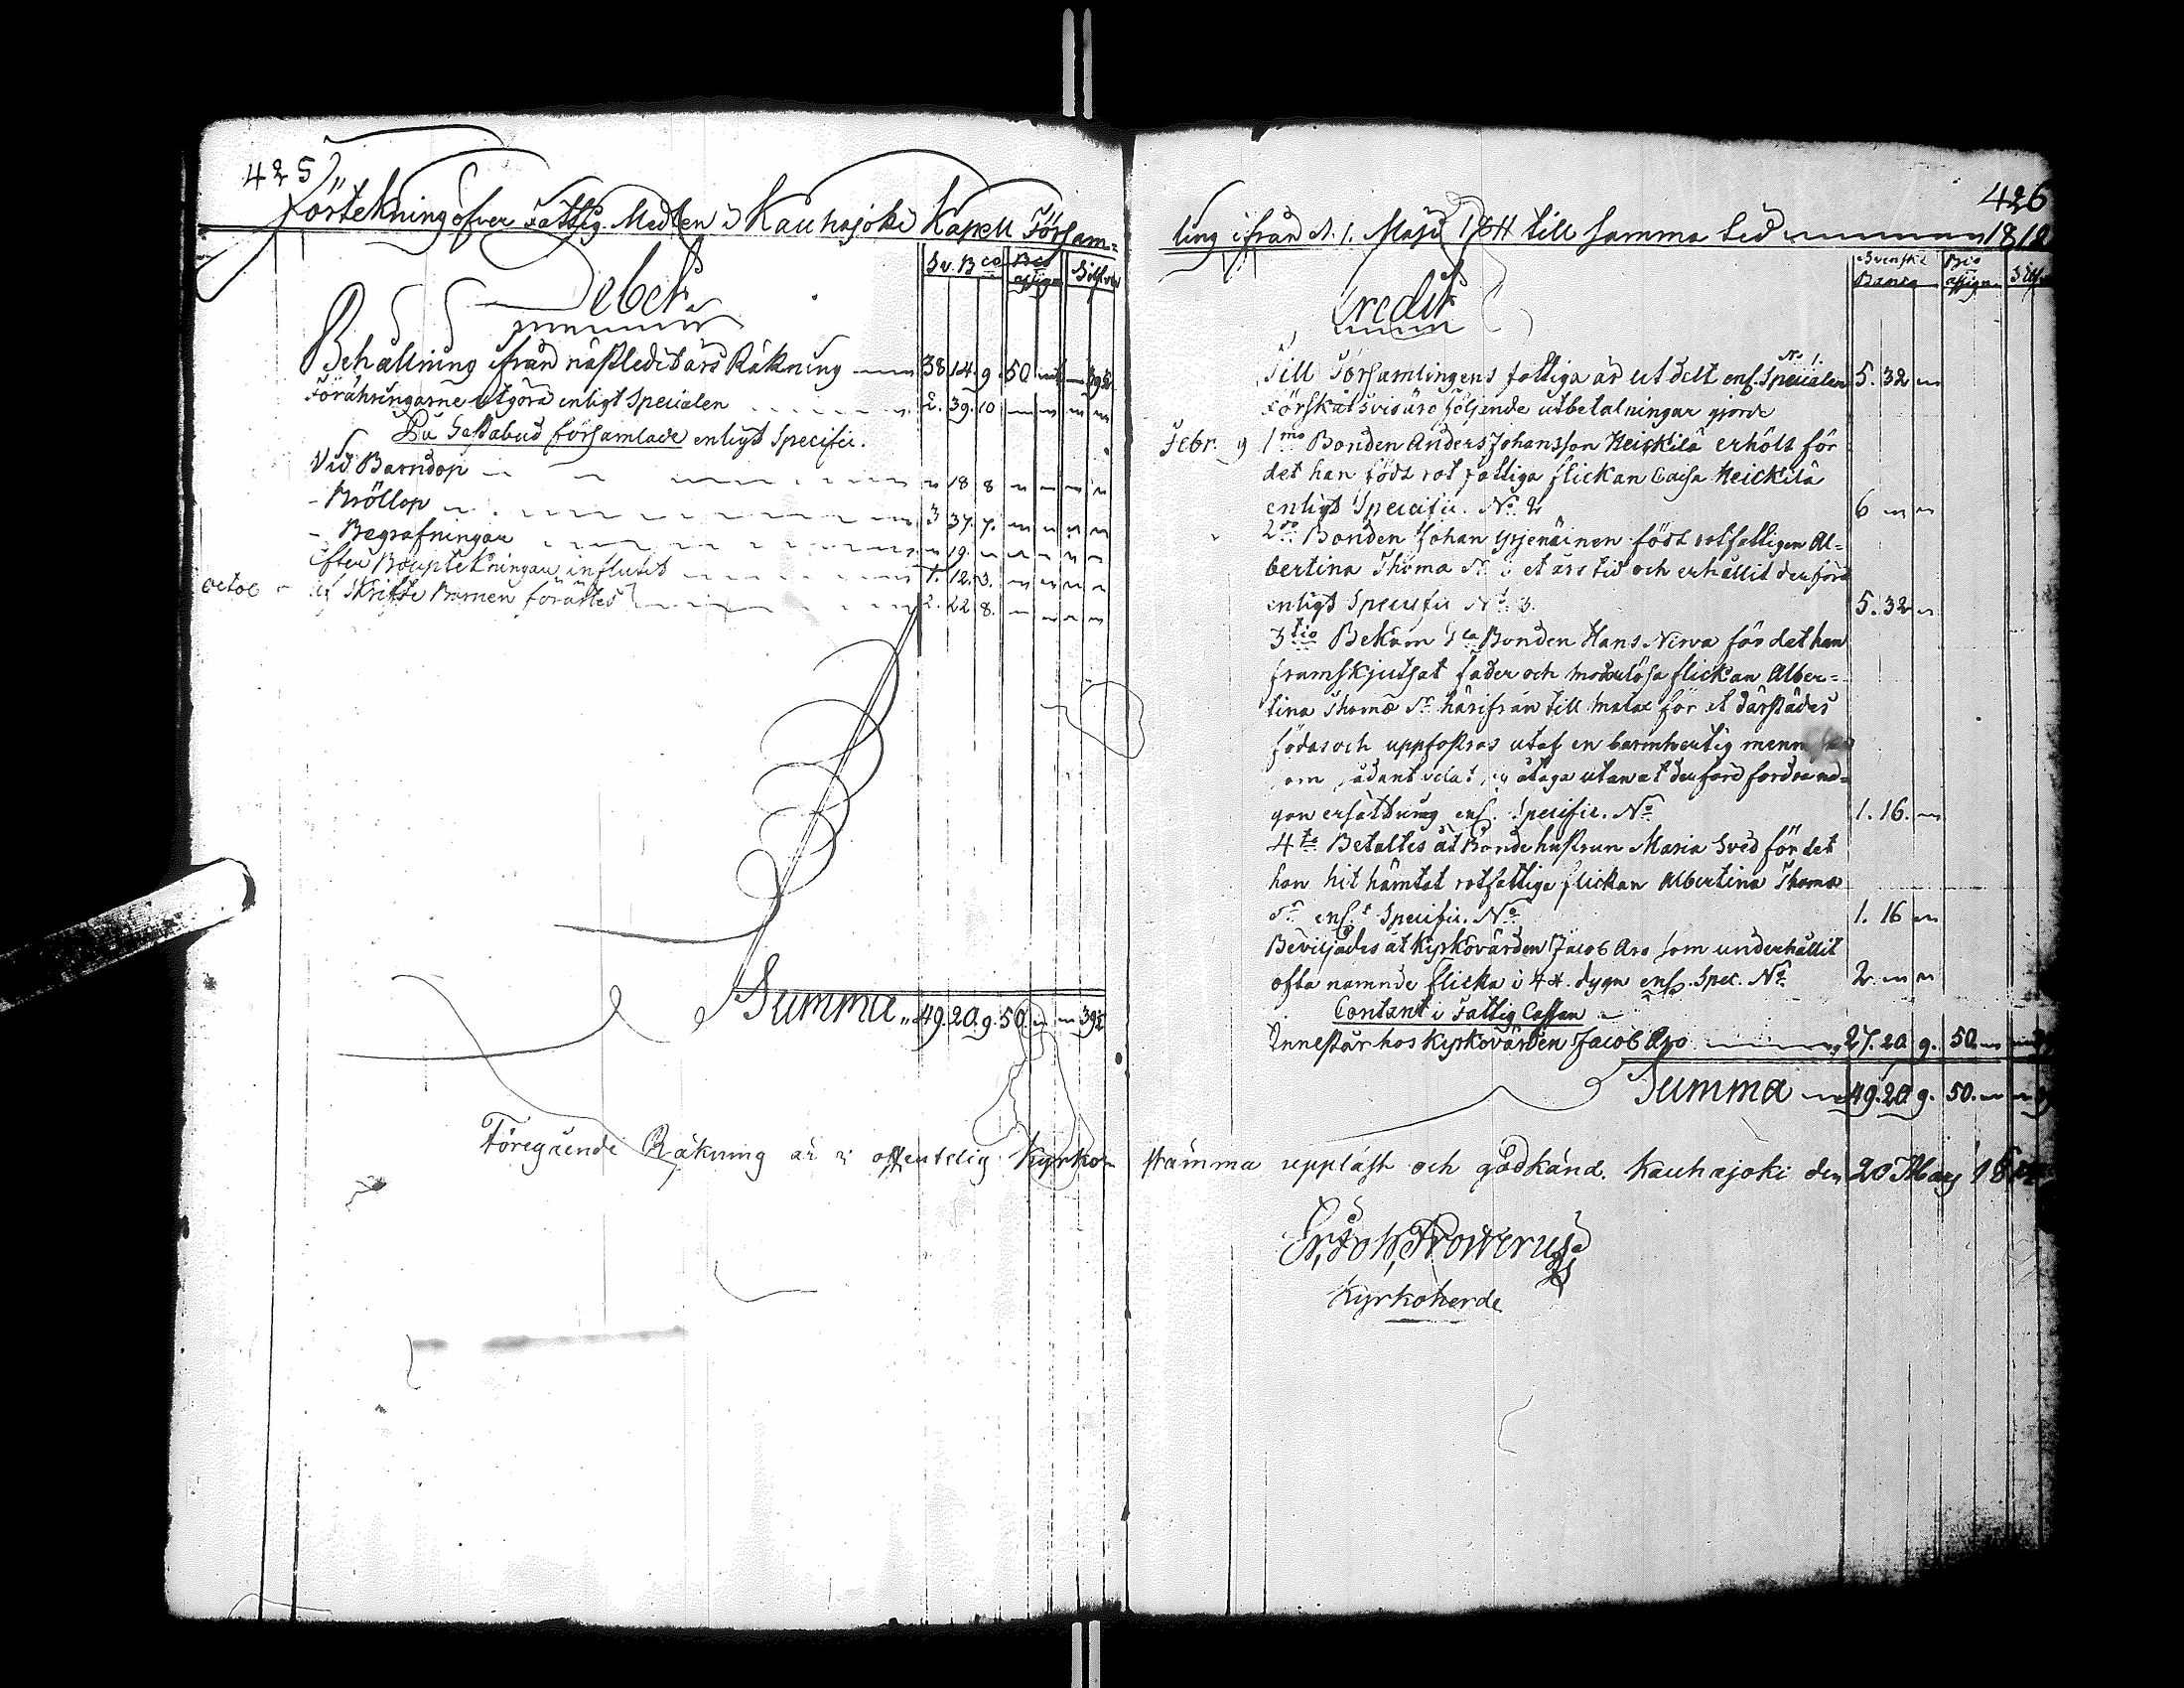 425
Förtekning öfver Fattig-Medlen i Kauhajoki Kapell Försam-
Debet
Sv. Bco Bco assign. Silfver
Behållning ifrån nästledit års Räkning 38 14. 9. 50
Föräringarne utgöra enligt Specialen 2. 39. 10
På Gästabud församlade enligt Specific.
Vid Barndop 18 8
- Bröllop 3 37. 7.
- Begrafningar 19.
Efter Bouptekningar influtit 1. 12. 3.
octob Skrifte Barnen förärtes 2. 22 8.
Summa 49. 20. 9. 50.
Föregående Räkning är i offentelig Kyrko-
426
ling ifrån d. 1. Maji 1811 till samma tid 1812
Credit
Svenska Banco Bco assign. Silf
Till Församlingens fattiga är ut delt enl. Specialen No 1. 5. 32
Förskåtsvis äro följande utbetalningar gjorde
Febr. 9 1mo Bonden Anders Johansson Heickilä erhölt för
det han födt rot fattiga flickan Caisa Heickilä
enligt Specific. No 2 6
2do Bonden Johan Yrjenäinen födt rotfattigen Al-
bertina Thomæ dr i et års tid och erhållit derföre
enligt Specific No 3. 5. 32
3tio Bekom Bonden Hans Nirva för det han
framskjutsat fader och moderlösa flickan Alber-
tina Thomæ dr härifrån till Malax för at därstädes
födas och uppfostras utaf en barmhertig
som sådant velat sig åtaga utan at derföre fordra nå-
gon ersättning enl. Specific. No 1. 16.
4to Betaltes åt Bondehustrun Maria Svid för det
hon hit hämtat rotfattiga flickan Albertina Thomæ
dr enl. Specific. No 1. 16
Beviljades åt Kyrkovärden Jacob Aro som underhållit
ofta namnde flicka i 44. dygn enl. Spec. No 2.
Contant i Fattig Cassan
Innestår hos Kyrkovärden Jacob Aro 27. 20 9. 50.
Summa 49. 20. 9. 50.
stämma uppläst och godkänd. Kauhajoki den 20 Maij
Kyrkoherde